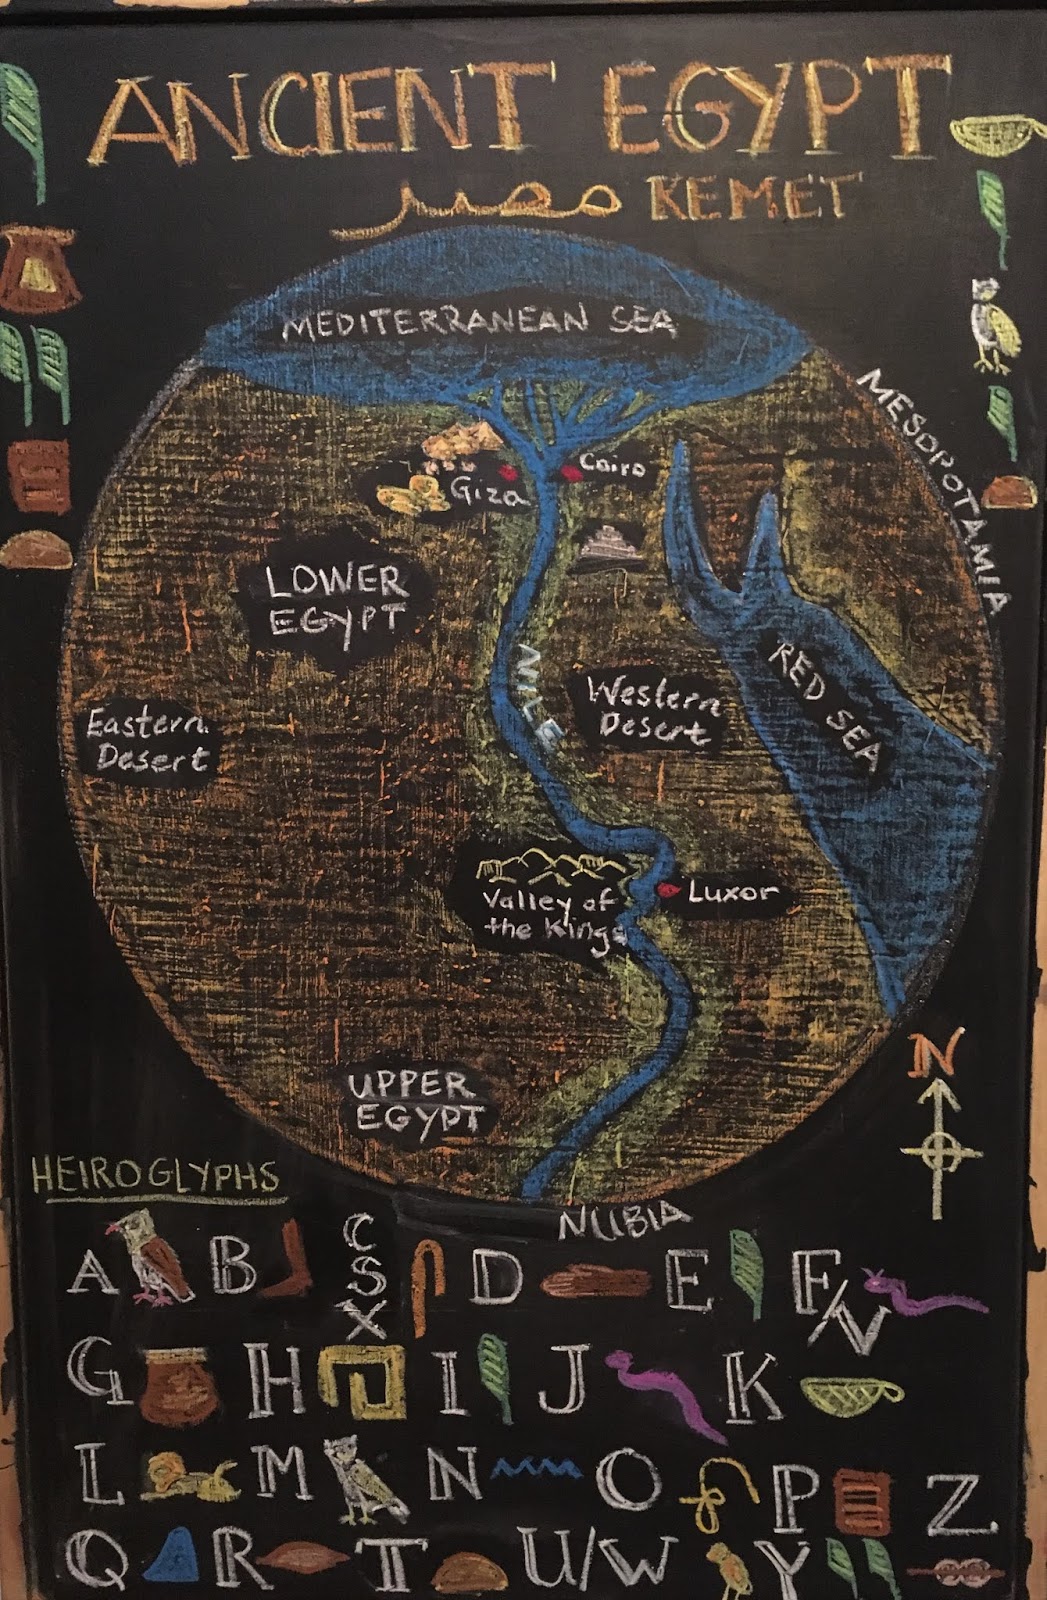 ANCIENT EGYPT
مصر KEMET
MEDITERRANEAN SEA
MESOPOTAMIA
Giza
Cairo
LOWER
EGYPT
NILE
RED SEA
Eastern
Desert
Western
Desert
Valley of
the Kings
Luxor
UPPER
EGYPT
N
NUBIA
HEIROGLYPHS
A B C S X D E F/V
G H I J K
L M N O P Z
Q R T U/W Y